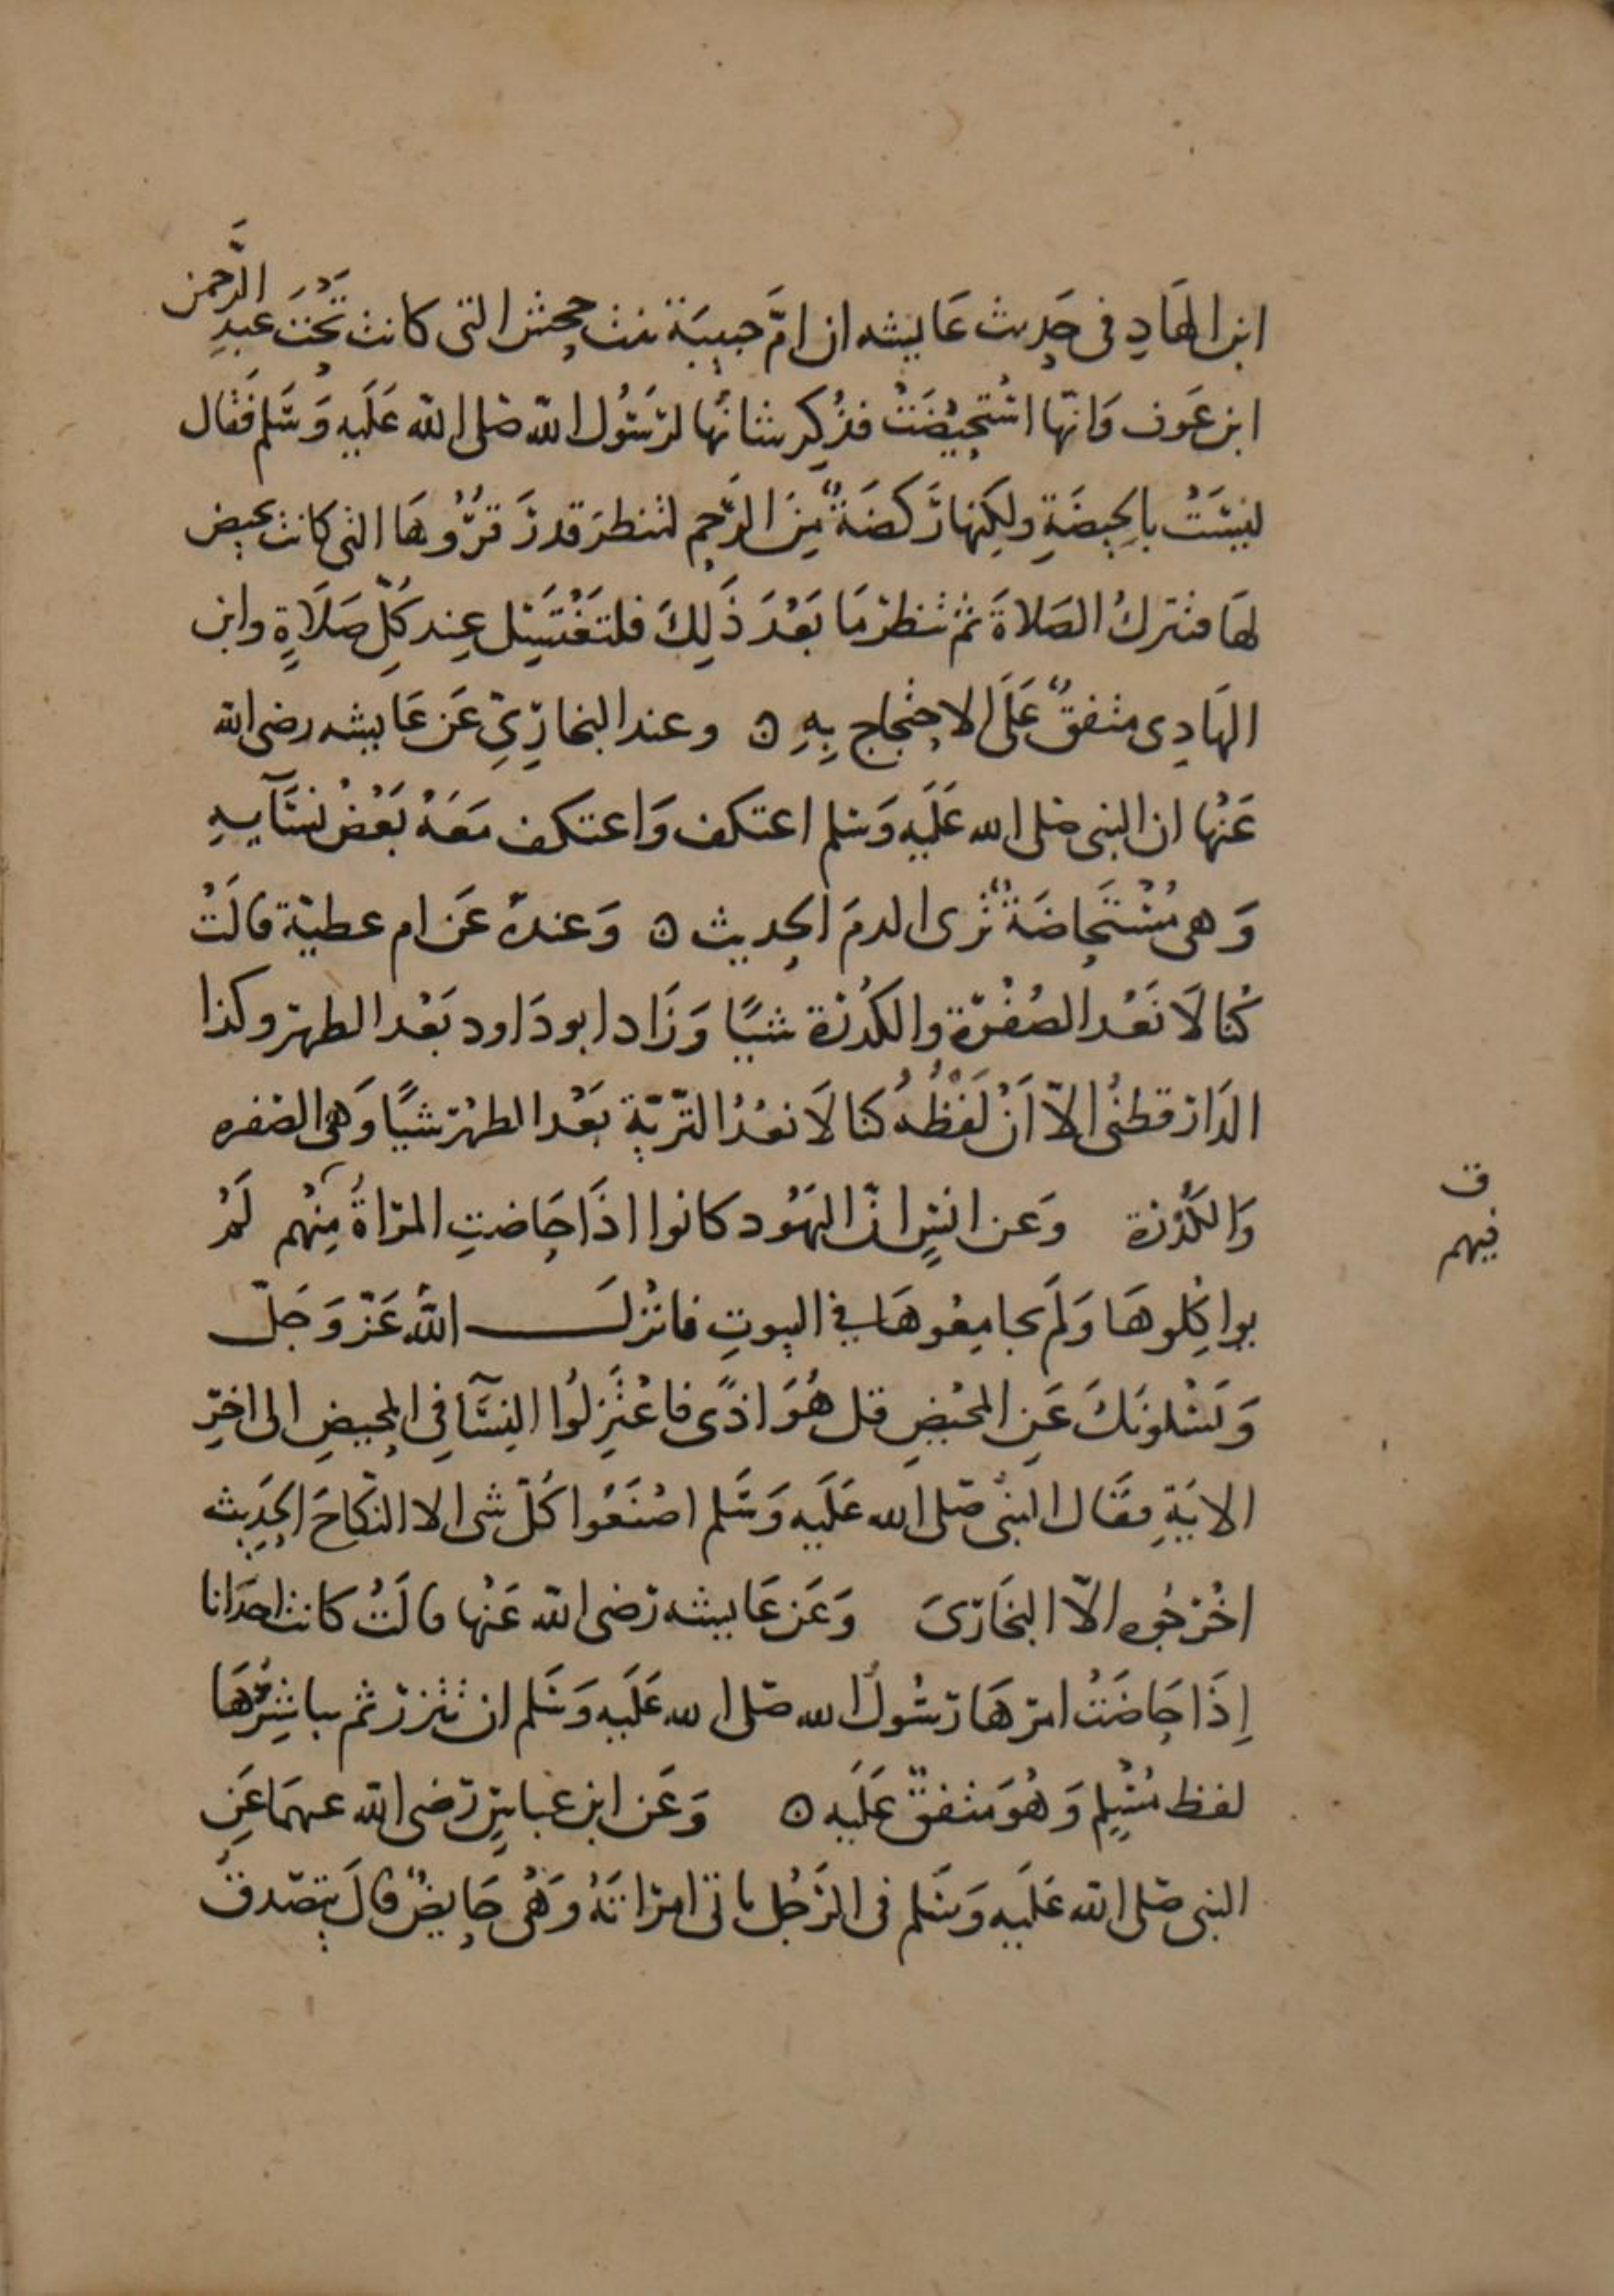 ابن الهَادِ في حَدِيث عَايشه ان امَّ حبيبَة بنت جحش التى كانت تَحْتَ عَبدِ الرَّحمن
ابن عَوف وَانّها اسْتُحِيضَتْ فذُكِر شانُها لرَسُول الله صَلى الله عَلَيه وَسَلم فَقال
ليسَتْ بالحِيضَةِ ولكِنها رَكضَةٌ مِنَ الرَّحِم لتنظر قدرَ قَرُوهَا التى كانت تحيض
لهَا فتترك الصَلاةَ ثم تنظر مَا بَعْدَ ذَلِكَ فلتَغْتَسِل عِند كلِّ صَلَاةٍ وابن
الهَادِى متفقٌ عَلَى الاحتجاج بِهِ ٥ وعند البخارِيّ عَن عَايشه رضى الله
عَنْها ان النبى صَلى الله عَلَيهِ وَسَلم اعتكف وَاعتكف مَعَهُ بَعْضُ نِسَآيهِ
وَهى مُسْتَحاضَةٌ تَرى الدمَ الحديث ٥ وَعندهُ عَن ام عطيّة قالَتْ
كُنا لَا نَعُد الصُفْرَة والكُدْرَة شيًا وَزَاد ابو دَاود بَعْد الطهر وكذا
الدَارقطنُى الاّ اَنْ لَفْظُهُ كنا لَا نعُدُ التَّرِيّة بَعْد الطهْر شيًا وَهى الصفره
وَالكُدْرَة وَعن انسٍ انّ اليَهُود كانوا اذَا حَاضتِ المرَاةُ مِنْهُم لَمْ
يواكِلوهَا وَلَم يجامِعُوهَا في البيوتِ فانْزلَ اللهُ عَزّ وَجَلّ
وَيَسْلونَكَ عَنِ المحْيضِ قل هُوَ اذًى فاعْتَزِلُوا النِسَآ في المحِيضِ الى اخرِ
الايَةِ فقَال النبُى صَلى الله عَلَيه وَسَلم اصْنَعُوا كُلّ شى الا النكَاحَ الحَدِيث
اخْرَجُوه الاّ البخَارىَ وَعَن عَايشه رَضى الله عَنْها قالَتْ كانت احدَانا
إِذَا حَاضَتْ امرَهَا رَسُولُ الله صَلى الله عَلَيه وَسَلم ان تتزر ثم يباشِرُهَا
لفظ مُسْلِم وَهُوَ متفقٌ عَلَيه ٥ وَعَن ابن عبَاسٍ رَضى الله عنهمَا عَنِ
النبى صَلى الله عَلَيه وَسَلم في الرَّجُل ياتى امرَاتهُ وَهْى حَايضٌ قالَ يتصَدقُ
ق
فيهم